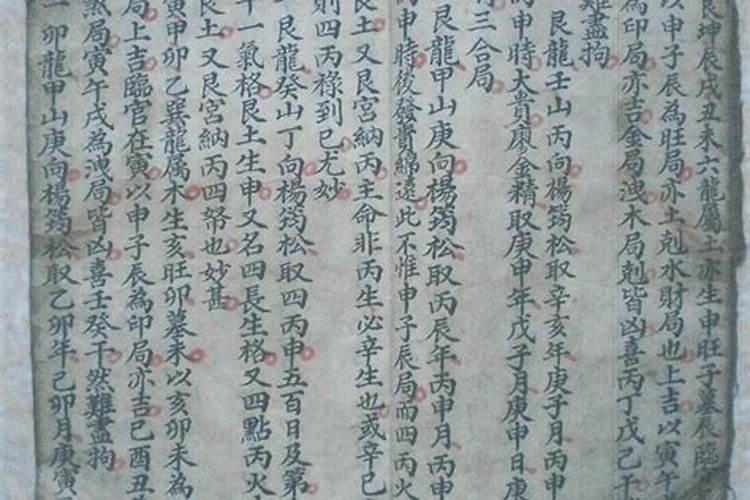 艮坤辰戌丑未六龍屬土亦生申旺子墓辰臨
以申子辰為旺局亦土剋水財局也上吉以寅午
為印局亦吉金局洩木局剋皆凶喜丙丁戊己干
難盡拘
艮龍壬山丙向楊筠松取辛亥年庚子月丙申
丙申時大貴廖金精取庚申年戊子月庚申日庚
三合局
艮龍甲山庚向楊筠松取丙辰年丙申月丙申
丙申時後發貴綿遠此不惟申子辰局而四丙火
艮土又艮宮納丙主命非丙生必辛生也或辛巳
則四丙祿到巳尤妙
艮龍癸山丁向楊筠松取四丙申五百日及第
十一氣格艮土生申又名四長生格又四點丙火
艮土又艮宮納丙四幣也妙甚
寅甲卯乙巽龍屬木生亥旺卯墓未以亥卯未為
局上吉臨官在寅以申子辰為印局亦吉巳酉丑
煞局寅午戌為洩局皆凶喜壬癸干然難盡拘
一卯龍甲山庚向楊筠松取乙卯年己卯月庚寅